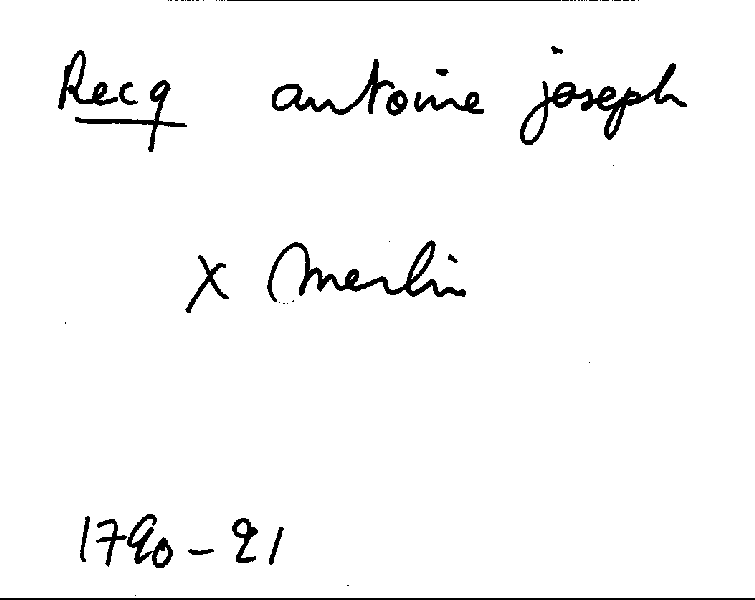 Recq antoine joseph
x Merlin
1790-21